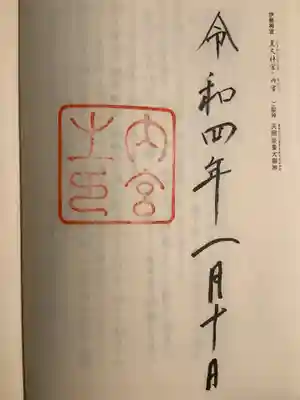 伊勢神宮 皇大神宮・内宮 ご祭神 天照皇大御神
令和四年一月十日
内宮
之印